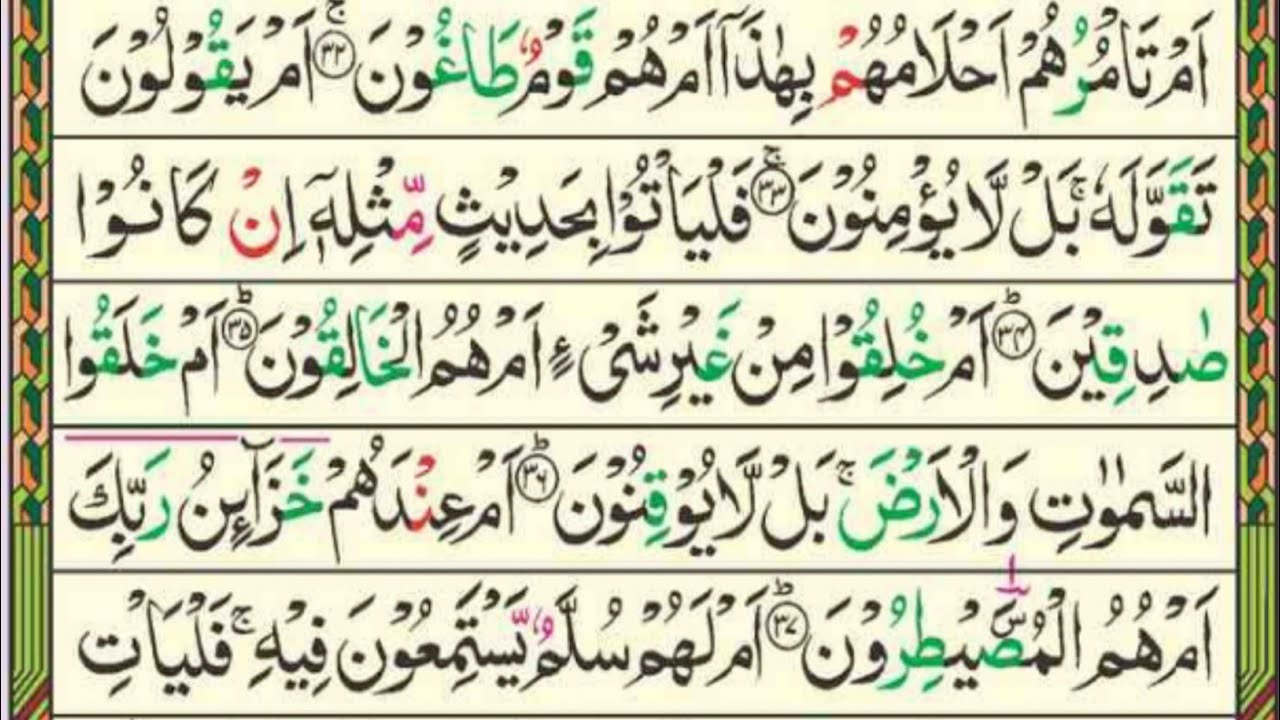 اَمْ تَاْمُرُهُمْ اَحْلَامُهُمْ بِهٰذَاۤ اَمْ هُمْ قَوْمٌ طَاغُوْنَ ۚ‏﴿۳۲﴾ اَمْ يَقُوْلُوْنَ
تَقَوَّلَهٗ ۚ بَلْ لَّا يُؤْمِنُوْنَ ۚ‏﴿۳۳﴾ فَلْيَاْتُوْا بِحَدِيْثٍ مِّثْلِهٖۤ اِنْ كَانُوْا
صٰدِقِيْنَ ؕ‏﴿۳۴﴾ اَمْ خُلِقُوْا مِنْ غَيْرِ شَیْءٍ اَمْ هُمُ الْخَالِقُوْنَ ؕ‏﴿۳۵﴾ اَمْ خَلَقُوا
السَّمٰوٰتِ وَالْاَرْضَ ۚ بَلْ لَّا يُوْقِنُوْنَ ؕ‏﴿۳۶﴾ اَمْ عِنْدَهُمْ خَزَآىِٕنُ رَبِّكَ
اَمْ هُمُ الْمُصَۜيْطِرُوْنَ ؕ‏﴿۳۷﴾ اَمْ لَهُمْ سُلَّمٌ يَّسْتَمِعُوْنَ فِيْهِ ۚ فَلْيَاْتِ